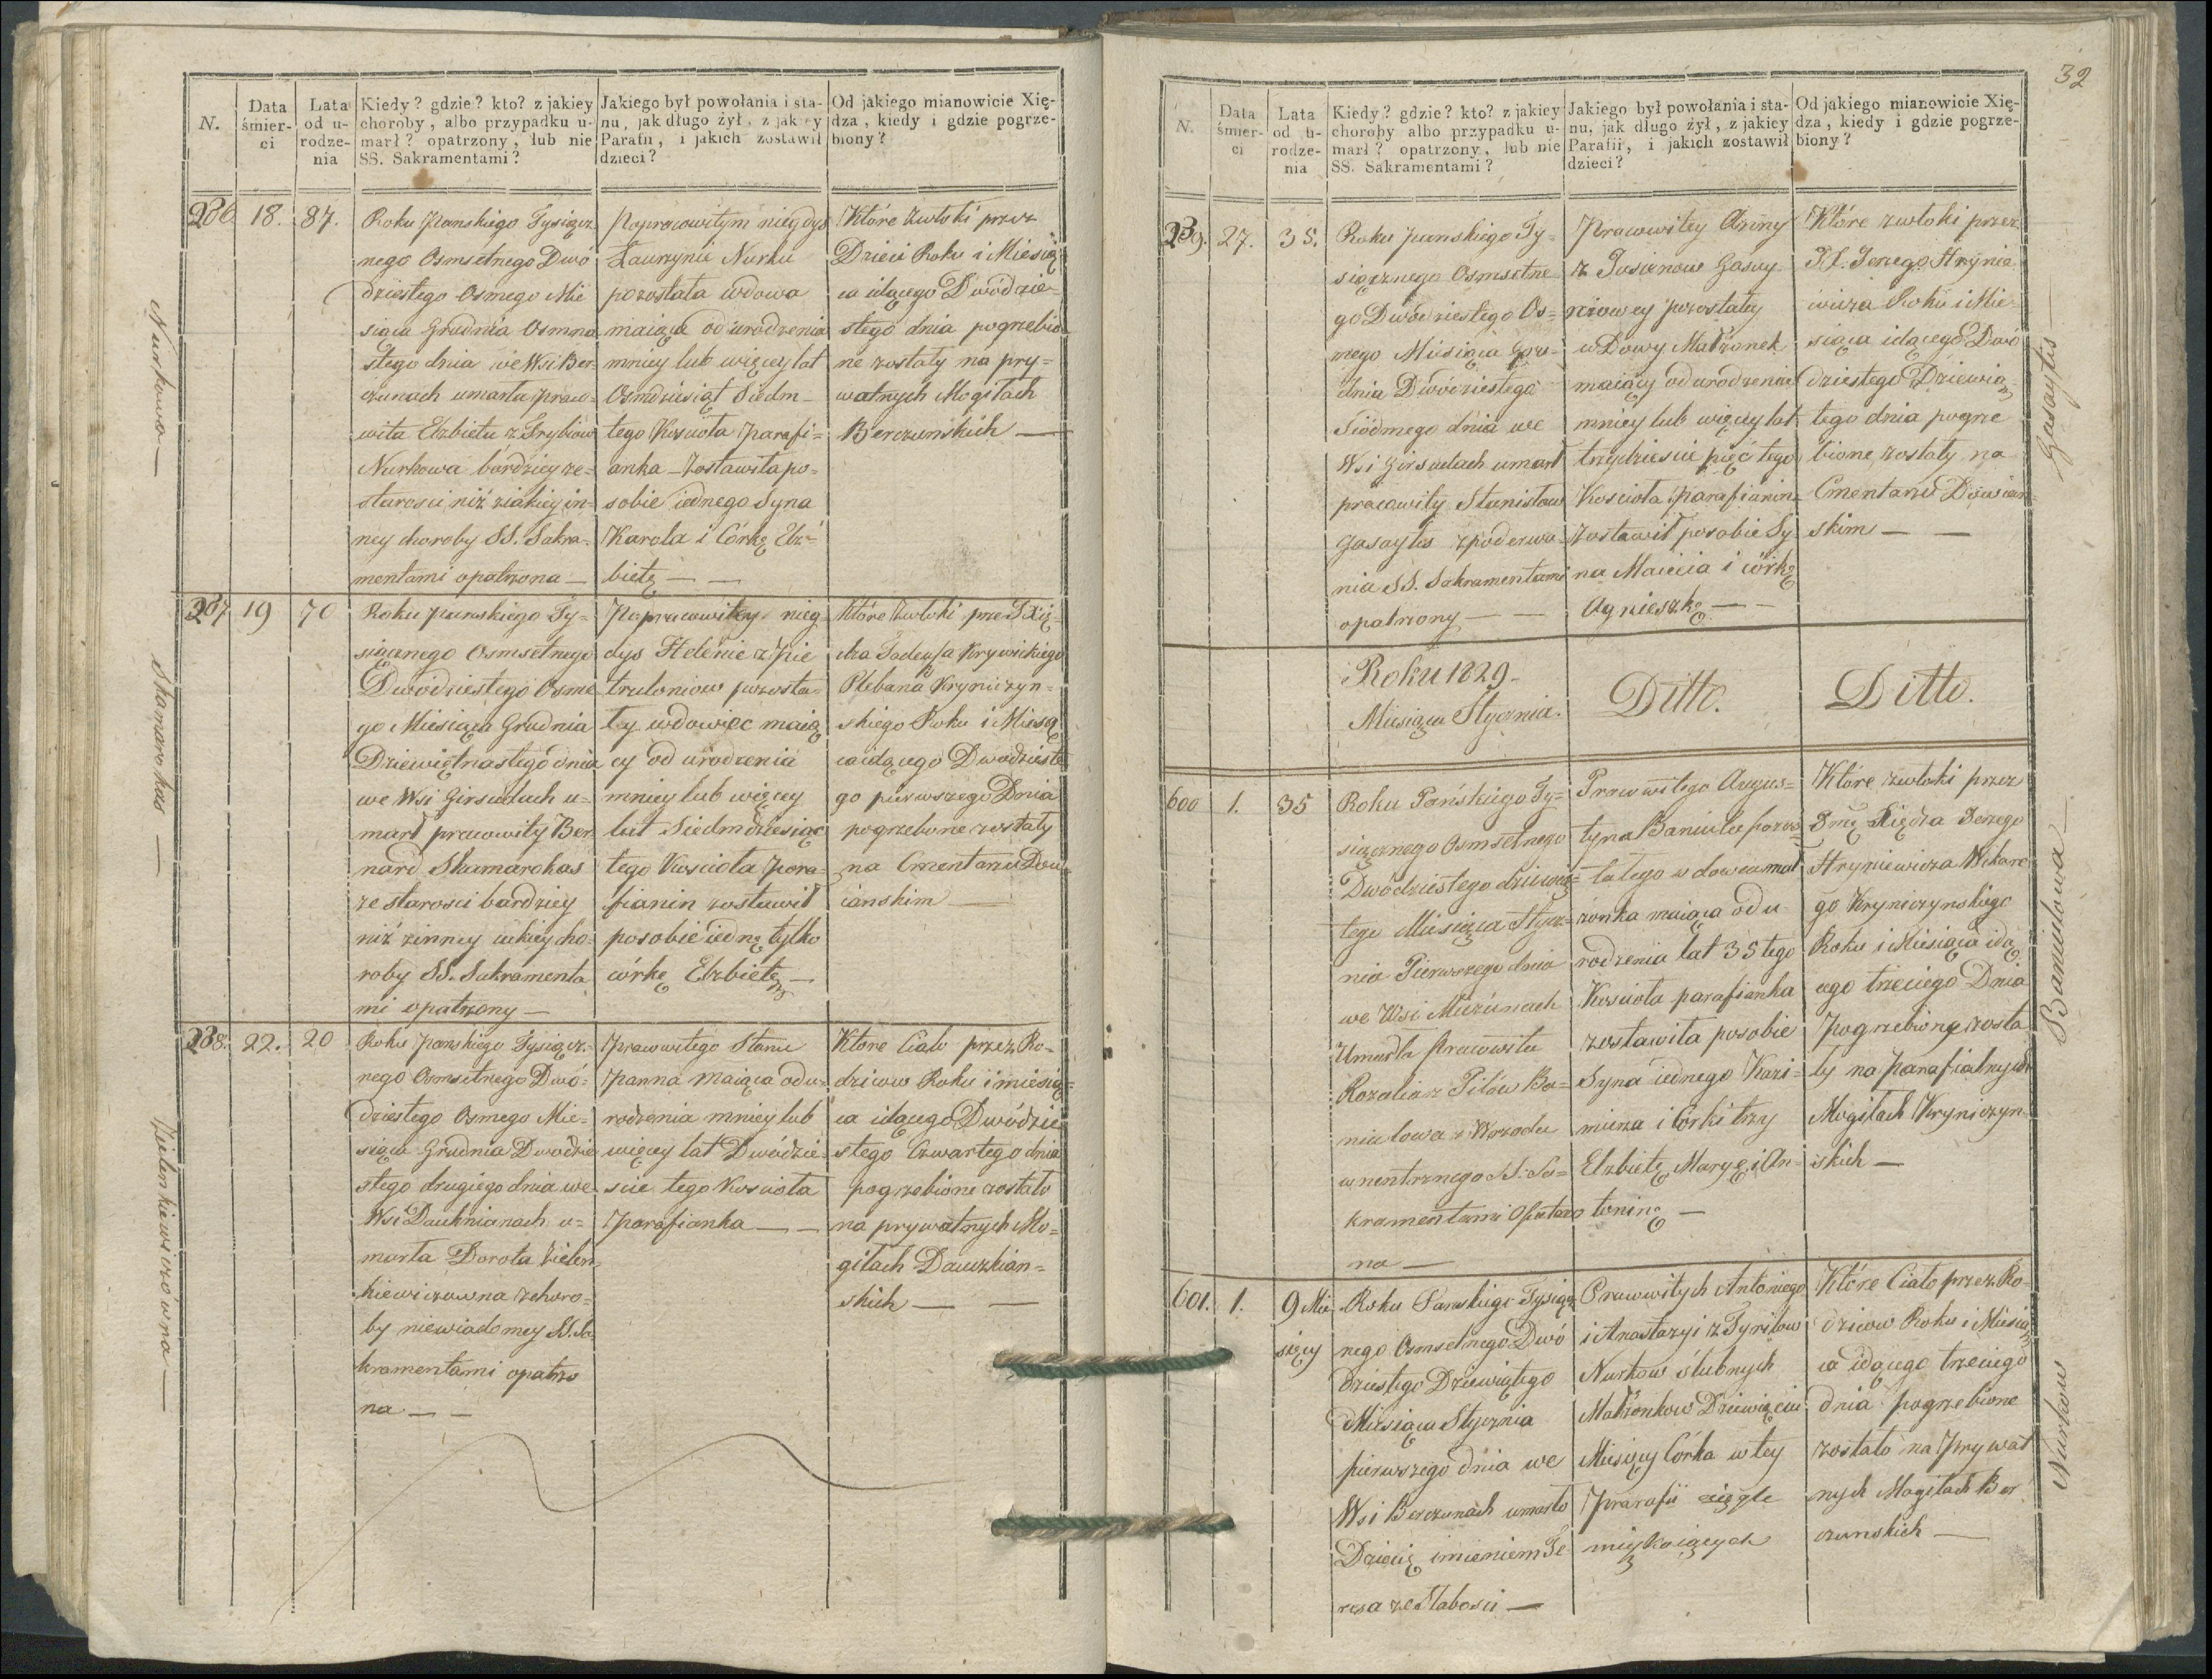 N.
Data
śmier-
ci
Lata
od u-
rodze-
nia
Kiedy? gdzie? kto? z jakiey
choroby, albo przypadku u-
marł? opatrzony, lub nie
SS. Sakramentami?
Jakiego był powołania i sta-
nu, jak długo żył, z jakiey
Parafii, i jakich zostawił
dzieci?
Od jakiego mianowicie Xię-
dza, kiedy i gdzie pogrze-
biony?
18.
87.
Roku Panskiego Tysiącz
nego Osmsetnego Dwó
dziestego Osmego Mie
siąca Grudnia Osmna
stego dnia we Wsi Ber-
czunach umarła praco-
wita Elzbieta z Grybiow
Nurkowa bardziey ze-
starosci niż z iakiey in-
ney choroby SS. Sakra-
mentami opatrzona —
Popracowitym niegdys
Laurynie Nurku
pozostała wdowa
maiąca od urodzenia
mniey lub więcey lat
Osmdziesiąt Siedm
tego Kosciola Parafi-
anka — Zostawiła po-
sobie iednego Syna
Karola i Córkę Elż-
bietę — —
Które Zwłoki przez
Dzieci Roku i Miesią
ca idącego Dwódzie-
stego dnia pogrzebio
ne zostały na pry-
watnych Mogiłach
Berczunskich —
Nurkowa —
19
70
Roku panskiego Ty-
siącznego Osmsetnego
Dwódziestego Osme
go Miesiąca Grudnia
Dziewiętnastego dnia
we Wsi Girsudach u-
marł pracowity Ber
nard Skamarokas
ze starosci bardziey
niż z inney iakiey cho-
roby SS. Sakramenta
mi opatrzony —
Popracowitey nieg-
dys Helenie z Pie
truloniow pozosta-
ły wdowiec maią
cy od urodzenia
mniey lub więcey
lat Siedmdziesiąt
tego Kosciola Para-
fianin zostawił
posobie iednę tylko
córkę Elzbietę —
Które Zwłoki przez Xię-
dza Tadeusza Krywickiego
Plebana Kryniczyn-
skiego Roku i Miesią
ca idącego Dwódzieste
go pierwszego Dnia
pogrzebione zostały
na Cmentarzu Dow
ianskim —
Skamarokas —
22.
20
Roku Panskiego Tysiącz-
nego Osmsetnego Dwó-
dziestego Osmego Mie-
siąca Grudnia Dwódzie
stego drugiego dnia we
Wsi Dauknianach u-
marła Dorota Zielen-
kiewiczowna z choro-
by niewiadomey SS. Sa
kramentami opatrzo
na — —
Pracowitego Stanu
Panna maiąca od u-
rodzenia mniey lub
więcey lat Dwódzie-
scie tego Kosciola
Parafianka — —
Ktore Ciało przez Ro-
dzicow Roku i miesią-
ca idącego Dwódzie
stego Czwartego dnia
pogrzebione zostało
na prywatnych Mo-
giłach Dauzkian-
skich — —
Zielenkiewiczowna —
32
N.
Data
śmier-
ci
Lata
od u-
rodze-
nia
Kiedy? gdzie? kto? z jakiey
choroby albo przypadku u-
marł? opatrzony, lub nie
SS. Sakramentami?
Jakiego był powołania i sta-
nu, jak długo żył, z jakiey
Parafii, i jakich zostawił
dzieci?
Od jakiego mianowicie Xię-
dza, kiedy i gdzie pogrze-
biony?
27.
35.
Roku panskiego Ty-
siącznego Osmsetne
go Dwódziestego Os-
mego Miesiąca Gru-
dnia Dwódziestego
Siódmego dnia we
Wsi Girsudach umarł
pracowity Stanisław
Gasaytis z poderwa-
nia SS. Sakramentami
opatrzony — —
Pracowitey
z Gasay
pozostały
wdowy Małżonek
maiący od urodzenia
mniey lub więcey lat
trzydziescie pięć tego
Kosciola parafianin
Zostawił posobie Sy
na Macieia i córkę
Agnieszkę —
Które zwłoki przez
Jerzego Hrynie
wicza Roku i Mie
siąca idącego Dwó
dziestego Dziewią
tego dnia pogrze
bione zostały na
Cmentarzu Dowian-
skim — —
Gasaytis —
Roku 1829.
Miesiąca Stycznia.
Ditto.
Ditto.
600
1.
35
Roku Pańskiego Ty-
siącznego Osmsetnego
Dwódziestego dziewią-
tego Miesiąca Stycz-
nia Pierwszego dnia
we Wsi Miżunach
Umarła Pracowita
Rozalia z Pilów Ba-
niulowa z Wrzodu
wnentrznego SS. Sa-
kramentami Opatrzo
na —
Pracowitego Augus-
tyna Baniula pozos
tałego wdowca mał
żonka maiąca od u
rodzenia lat 35 tego
Kosciola parafianka
zostawiła posobie
Syna iednego Kazi-
mierza i Córki trzy
Elzbietę, Maryę i An-
toninę —
Które zwłoki przez
Jmę Xiędza Jerzego
Hryniewicza Wikare
go Kryniczynskiego
Roku i Miesiąca idą
cego trzeciego Dnia
Pogrzebione zosta
ły na parafialnych
Mogiłach Kryniczyn-
skich —
Baniulowa —
601.
1.
9 Mie
sięcy
Roku Panskiego Tysiącz
nego Osmsetnego Dwó
dziestego Dziewiątego
Miesiąca Stycznia
pierwszego dnia we
Wsi Berczunach umarło
Dziecię imieniem Te
resa ze Słabosci —
Pracowitych Antoniego
i Anastazyi z Tyrilow
Nurkow ślubnych
Małżonkow Dziewięciu
Miesięcy Córka w tey
Prarafii ciągle
mięszkaiących
Które Ciało przez Ro-
dzicow Roku i Miesią
ca idącego trzeciego
dnia pogrzebione
zostało na Prywat
nych Mogiłach Ber
czunskich —
Nurkow